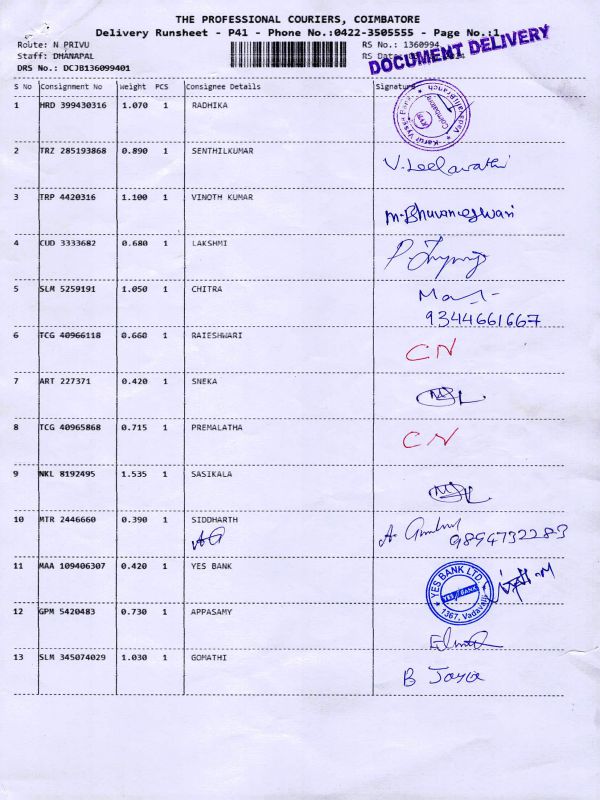 THE PROFESSIONAL COURIERS, COIMBATORE
Delivery Runsheet - P41 - Phone No.:0422-3505555 - Page No.:1
Route: N PRIVU RS No.: 1360994
Staff: DHANAPAL RS Date:
DRS No.: DCJB136099401
DOCUMENT DELIVERY
S No Consignment No Weight PCS Consignee Details Signature
1 HRD 399430316 1.070 1 RADHIKA
Karur Vysya Bank Coimbatore KVB
2 TRZ 285193868 0.890 1 SENTHILKUMAR V. Leelavathi
3 TRP 4420316 1.100 1 VINOTH KUMAR M. Bhuvaneshwari
4 CUD 3333682 0.680 1 LAKSHMI
5 SLM 5259191 1.050 1 CHITRA
9344661667
6 TCG 40966118 0.660 1 RAJESHWARI CN
7 ART 227371 0.420 1 SNEKA
8 TCG 40965868 0.715 1 PREMALATHA CN
9 NKL 8192495 1.535 1 SASIKALA
10 MTR 2446660 0.390 1 SIDDHARTH 9894732283
11 MAA 109406307 0.420 1 YES BANK
YES BANK LTD
YES BANK
1367, Vadavalli
12 GPM 5420483 0.730 1 APPASAMY
13 SLM 345074029 1.030 1 GOMATHI B Jaya